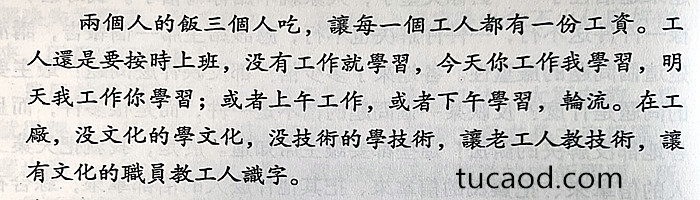 兩個人的飯三個人吃，讓每一個工人都有一份工資。工
人還是要按時上班，没有工作就學習，今天你工作我學習，明
天我工作你學習；或者上午工作，或者下午學習，輪流。在工
廠，没文化的學文化，没技術的學技術，讓老工人教技術，讓
有文化的職員教工人識字。
tucaod.com